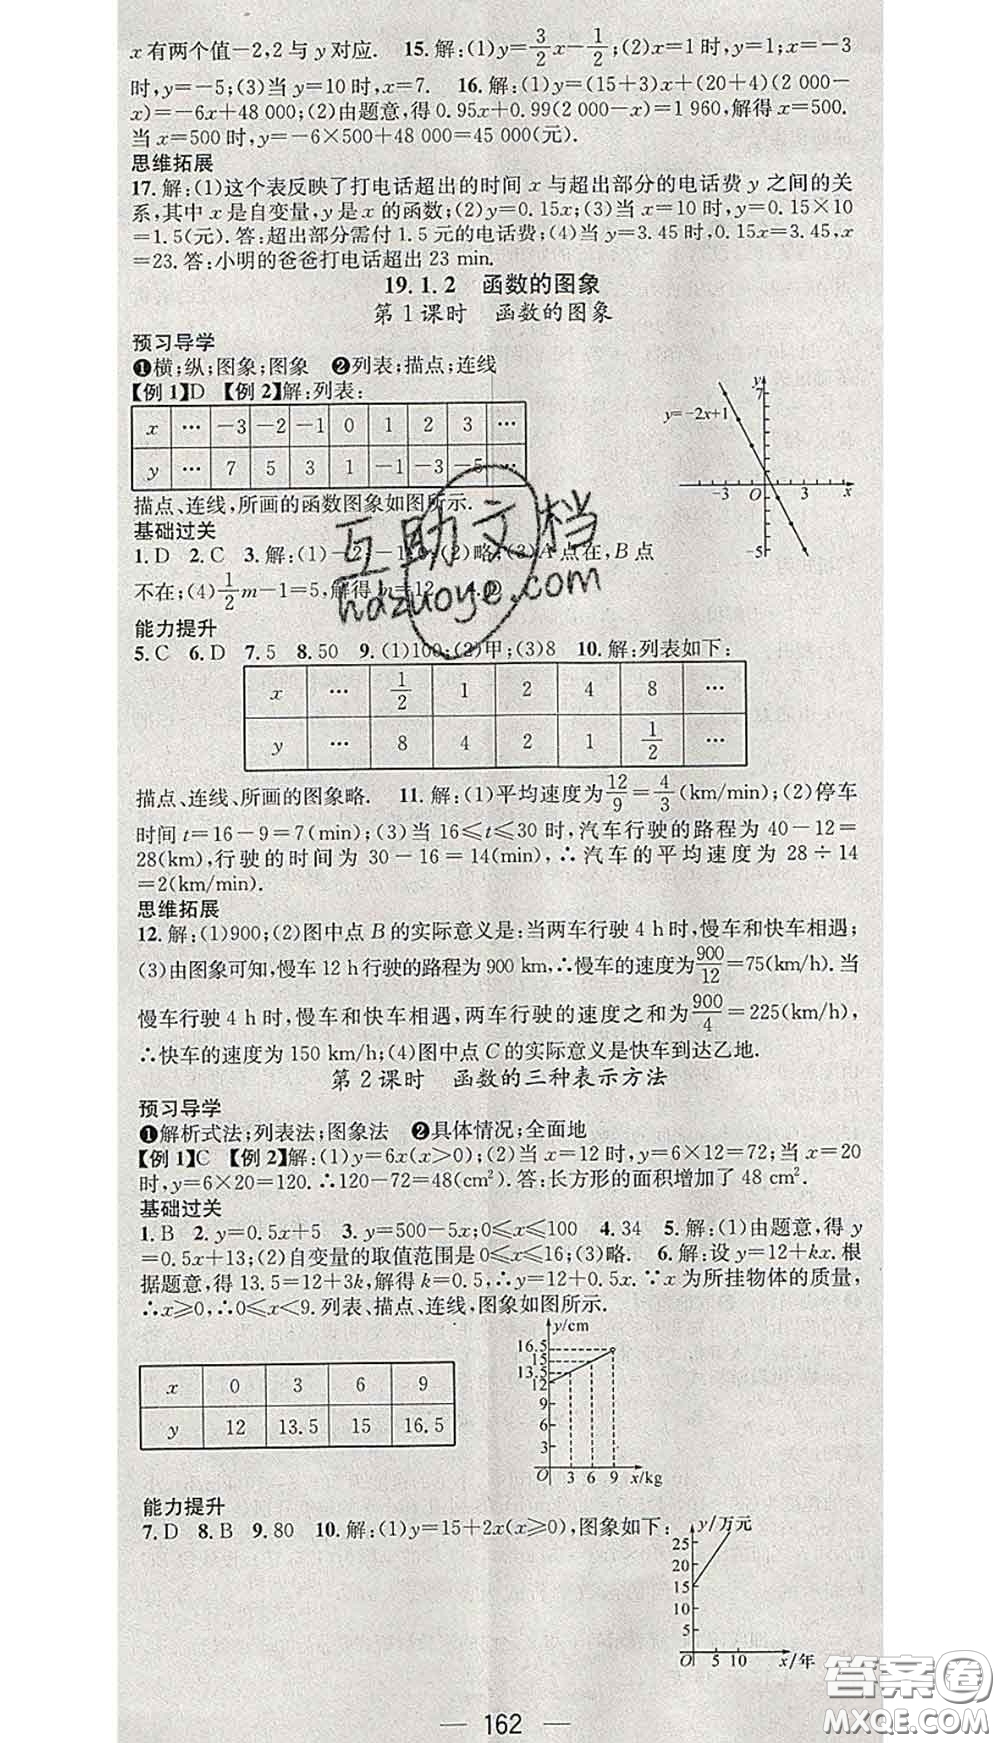 x有两个值－2,2与y对应.　15.解:(1)y=3/2x−1/2;(2)x=1时,y=1;x=−3
时,y=−5;(3)当y=10时,x=7.　16.解:(1)y=(15+3)x+(20+4)(2 000−
x)=−6x+48 000;(2)由题意,得0.95x+0.99(2 000−x)=1 960,解得x=500.
当x=500时,y=−6×500+48 000=45 000(元).
思维拓展
17.解:(1)这个表反映了打电话超出的时间x与超出部分的电话费y之间的关
系,其中x是自变量,y是x的函数;(2)y=0.15x;(3)当x=10时,y=0.15×10
=1.5(元).答:超出部分需付1.5元的电话费;(4)当y=3.45时,0.15x=3.45,x
=23.答:小明的爸爸打电话超出23 min.
19.1.2　函数的图象
第1课时　函数的图象
预习导学
❶横;纵;图象;图象　❷列表;描点;连线
【例1】D　【例2】解:列表:
x … −3 −2 −1 0 1 2 3 …
y … 7 5 3 1 −1 −3 −5 …
y 7 y=−2x+1 −3 O 3 x −5
描点、连线,所画的函数图象如图所示.
基础过关
1.D　2.C　3.解:(1)−2;−1;0;(2)略;(3)A点在,B点
不在;(4)1/2m−1=5,解得m=12.
能力提升
5.C　6.D　7.5　8.50　9.(1)100;(2)甲;(3)8　10.解:列表如下:
x … 1/2 1 2 4 8 …
y … 8 4 2 1 1/2 …
描点、连线、所画的图象略.　11.解:(1)平均速度为12/9=4/3(km/min);(2)停车
时间t=16−9=7(min);(3)当16≤t≤30时,汽车行驶的路程为40−12=
28(km),行驶的时间为30−16=14(min),∴汽车的平均速度为28÷14
=2(km/min).
思维拓展
12.解:(1)900;(2)图中点B的实际意义是:当两车行驶4 h时,慢车和快车相遇;
(3)由图象可知,慢车12 h行驶的路程为900 km,∴慢车的速度为900/12=75(km/h).当
慢车行驶4 h时,慢车和快车相遇,两车行驶的速度之和为900/4=225(km/h),
∴快车的速度为150 km/h;(4)图中点C的实际意义是快车到达乙地.
第2课时　函数的三种表示方法
预习导学
❶解析式法;列表法;图象法　❷具体情况;全面地
【例1】C　【例2】解:(1)y=6x(x>0);(2)当x=12时,y=6×12=72;当x=20
时,y=6×20=120.∴120−72=48(cm²).答:长方形的面积增加了48 cm².
基础过关
1.B　2.y=0.5x+5　3.y=500−5x;0≤x≤100　4.34　5.解:(1)由题意,得y
=0.5x+13;(2)自变量的取值范围是0≤x≤16;(3)略.　6.解:设y=12+kx.根
据题意,得13.5=12+3k,解得k=0.5,∴y=12+0.5x.∵x为所挂物体的质量,
∴x≥0,∴0≤x<9.列表、描点、连线,图象如图所示.
x 0 3 6 9
y 12 13.5 15 16.5
y/cm 16.5 15 13.5 12 9 6 3 O 3 6 9 x/kg
能力提升
7.D　8.B　9.80　10.解:(1)y=15+2x(x≥0),图象如下:
y/万元 25 20 15 10 5 O 5 10 x/年
162
互助文档
hdzuoye.com
答案圈
MXQE.COM